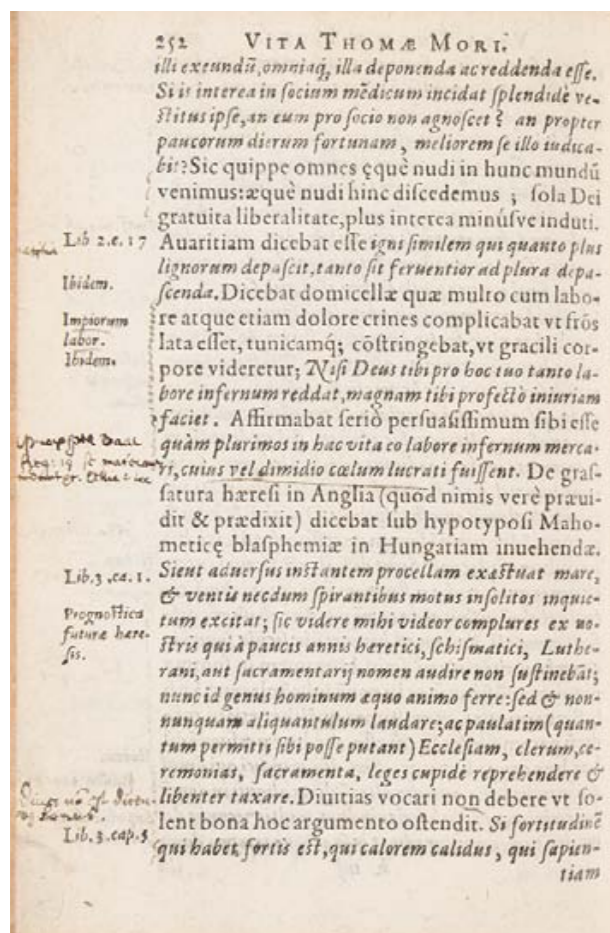 252 VITA THOMÆ MORI.
illi exeundū, omniaq; illa deponenda ac reddenda eſſe.
Si is interea in ſocium mēdicum incidat ſplendidè ve-
ſtitus ipſe, an eum pro ſocio non agnoſcet? an propter
paucorum dierum fortunam, meliorem ſe illo iudica-
bit? Sic quippe omnes ęquè nudi in hunc mundū
venimus: æquè nudi hinc diſcedemus; ſola Dei
gratuita liberalitate, plus interea minúſve induti.
Lib 2.c.17
Auaritiam dicebat eſſe igni ſimilem qui quanto plus
lignorum depaſcit, tanto ſit feruentior ad plura depa-
Ibidem.
ſcenda. Dicebat domicellæ quæ multo cum labo-
Impiorum
re atque etiam dolore crines complicabat vt frōs
labor.
lata eſſet, tunicamq; cōſtringebat, vt gracili cor-
Ibidem.
pore videretur; Niſi Deus tibi pro hoc tuo tanto la-
bore infernum reddat, magnam tibi profectò iniuriam
faciet. Affirmabat ſeriò perſuaſiſſimum ſibi eſſe
quàm plurimos in hac vita eo labore infernum merca-
ri, cuius vel dimidio cœlum lucrati fuiſſent. De graſ-
ſatura hæreſi in Anglia (quod nimis verè præui-
dit & prædixit) dicebat ſub hypotypoſi Maho-
meticę blaſphemiæ in Hungariam inuehendæ.
Lib.3.ca.1.
Sicut aduerſus inſtantem procellam exæſtuat mare,
& ventis necdum ſpirantibus motus inſolitos inquie-
Prognoſtica
tum excitat; ſic videre mihi videor complures ex no-
futuræ hære-
ſtris qui à paucis annis hæretici, ſchiſmatici, Luthe-
ſis.
rani, aut ſacramentarij nomen audire non ſuſtinebāt;
nunc id genus hominum æquo animo ferre: ſed & non-
nunquam aliquantulum laudare; ac paulatim (quan-
tum permitti ſibi poſſe putant) Eccleſiam, clerum, ce-
remonias, ſacramenta, leges cupidè reprehendere &
libenter taxare. Diuitias vocari non debere vt ſo-
Lib.3.cap.5
lent bona hoc argumento oſtendit. Si fortitudinē
qui habet, fortis eſt, qui calorem calidus, qui ſapien-
tiam